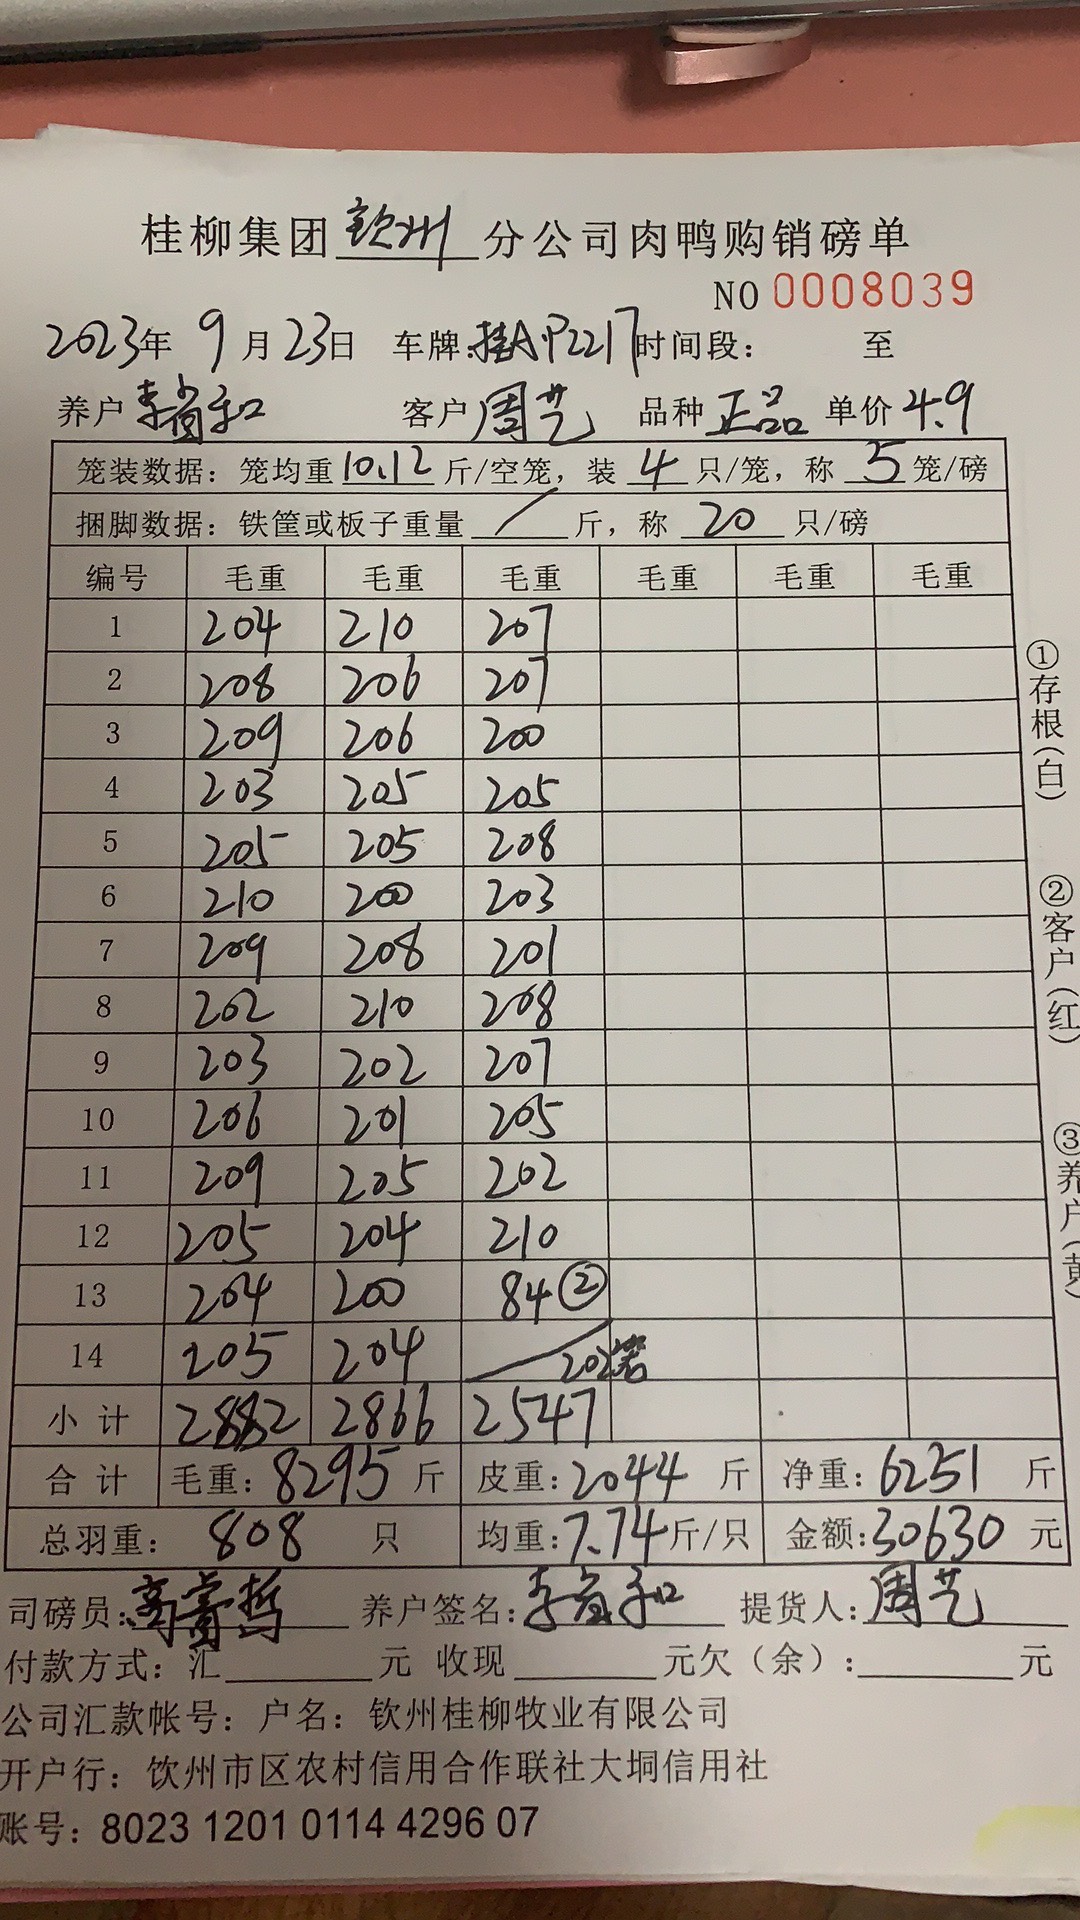 桂柳集团钦州分公司肉鸭购销磅单
NO 0008039
2023年 9月23日 车牌:桂A·P2217 时间段: 至
养户 李省和 客户 周艺 品种 正品 单价 4.9
笼装数据:笼均重 10.12 斤/空笼,装 4 只/笼,称 5 笼/磅
捆脚数据:铁筐或板子重量 / 斤,称 20 只/磅
编号 毛重 毛重 毛重 毛重 毛重 毛重
1 204 210 207
2 208 206 207
3 209 206 200
4 203 205 205
5 205 205 208
6 210 200 203
7 209 208 201
8 202 210 208
9 203 202 207
10 206 201 205
11 209 205 202
12 205 204 210
13 204 200 84 ②
14 205 204 202笼
小计 2882 2866 2547
合计 毛重:8295斤 皮重:2044斤 净重:6251斤
总羽重: 808 只 均重:7.74斤/只 金额:30630元
司磅员: 养户签名:李省和 提货人:周艺
付款方式:汇 元 收现 元欠(余): 元
公司汇款帐号:户名:钦州桂柳牧业有限公司
开户行:饮州市区农村信用合作联社大垌信用社
账号:8023 1201 0114 4296 07
①存根(白)
②客户(红)
③养户(黄)